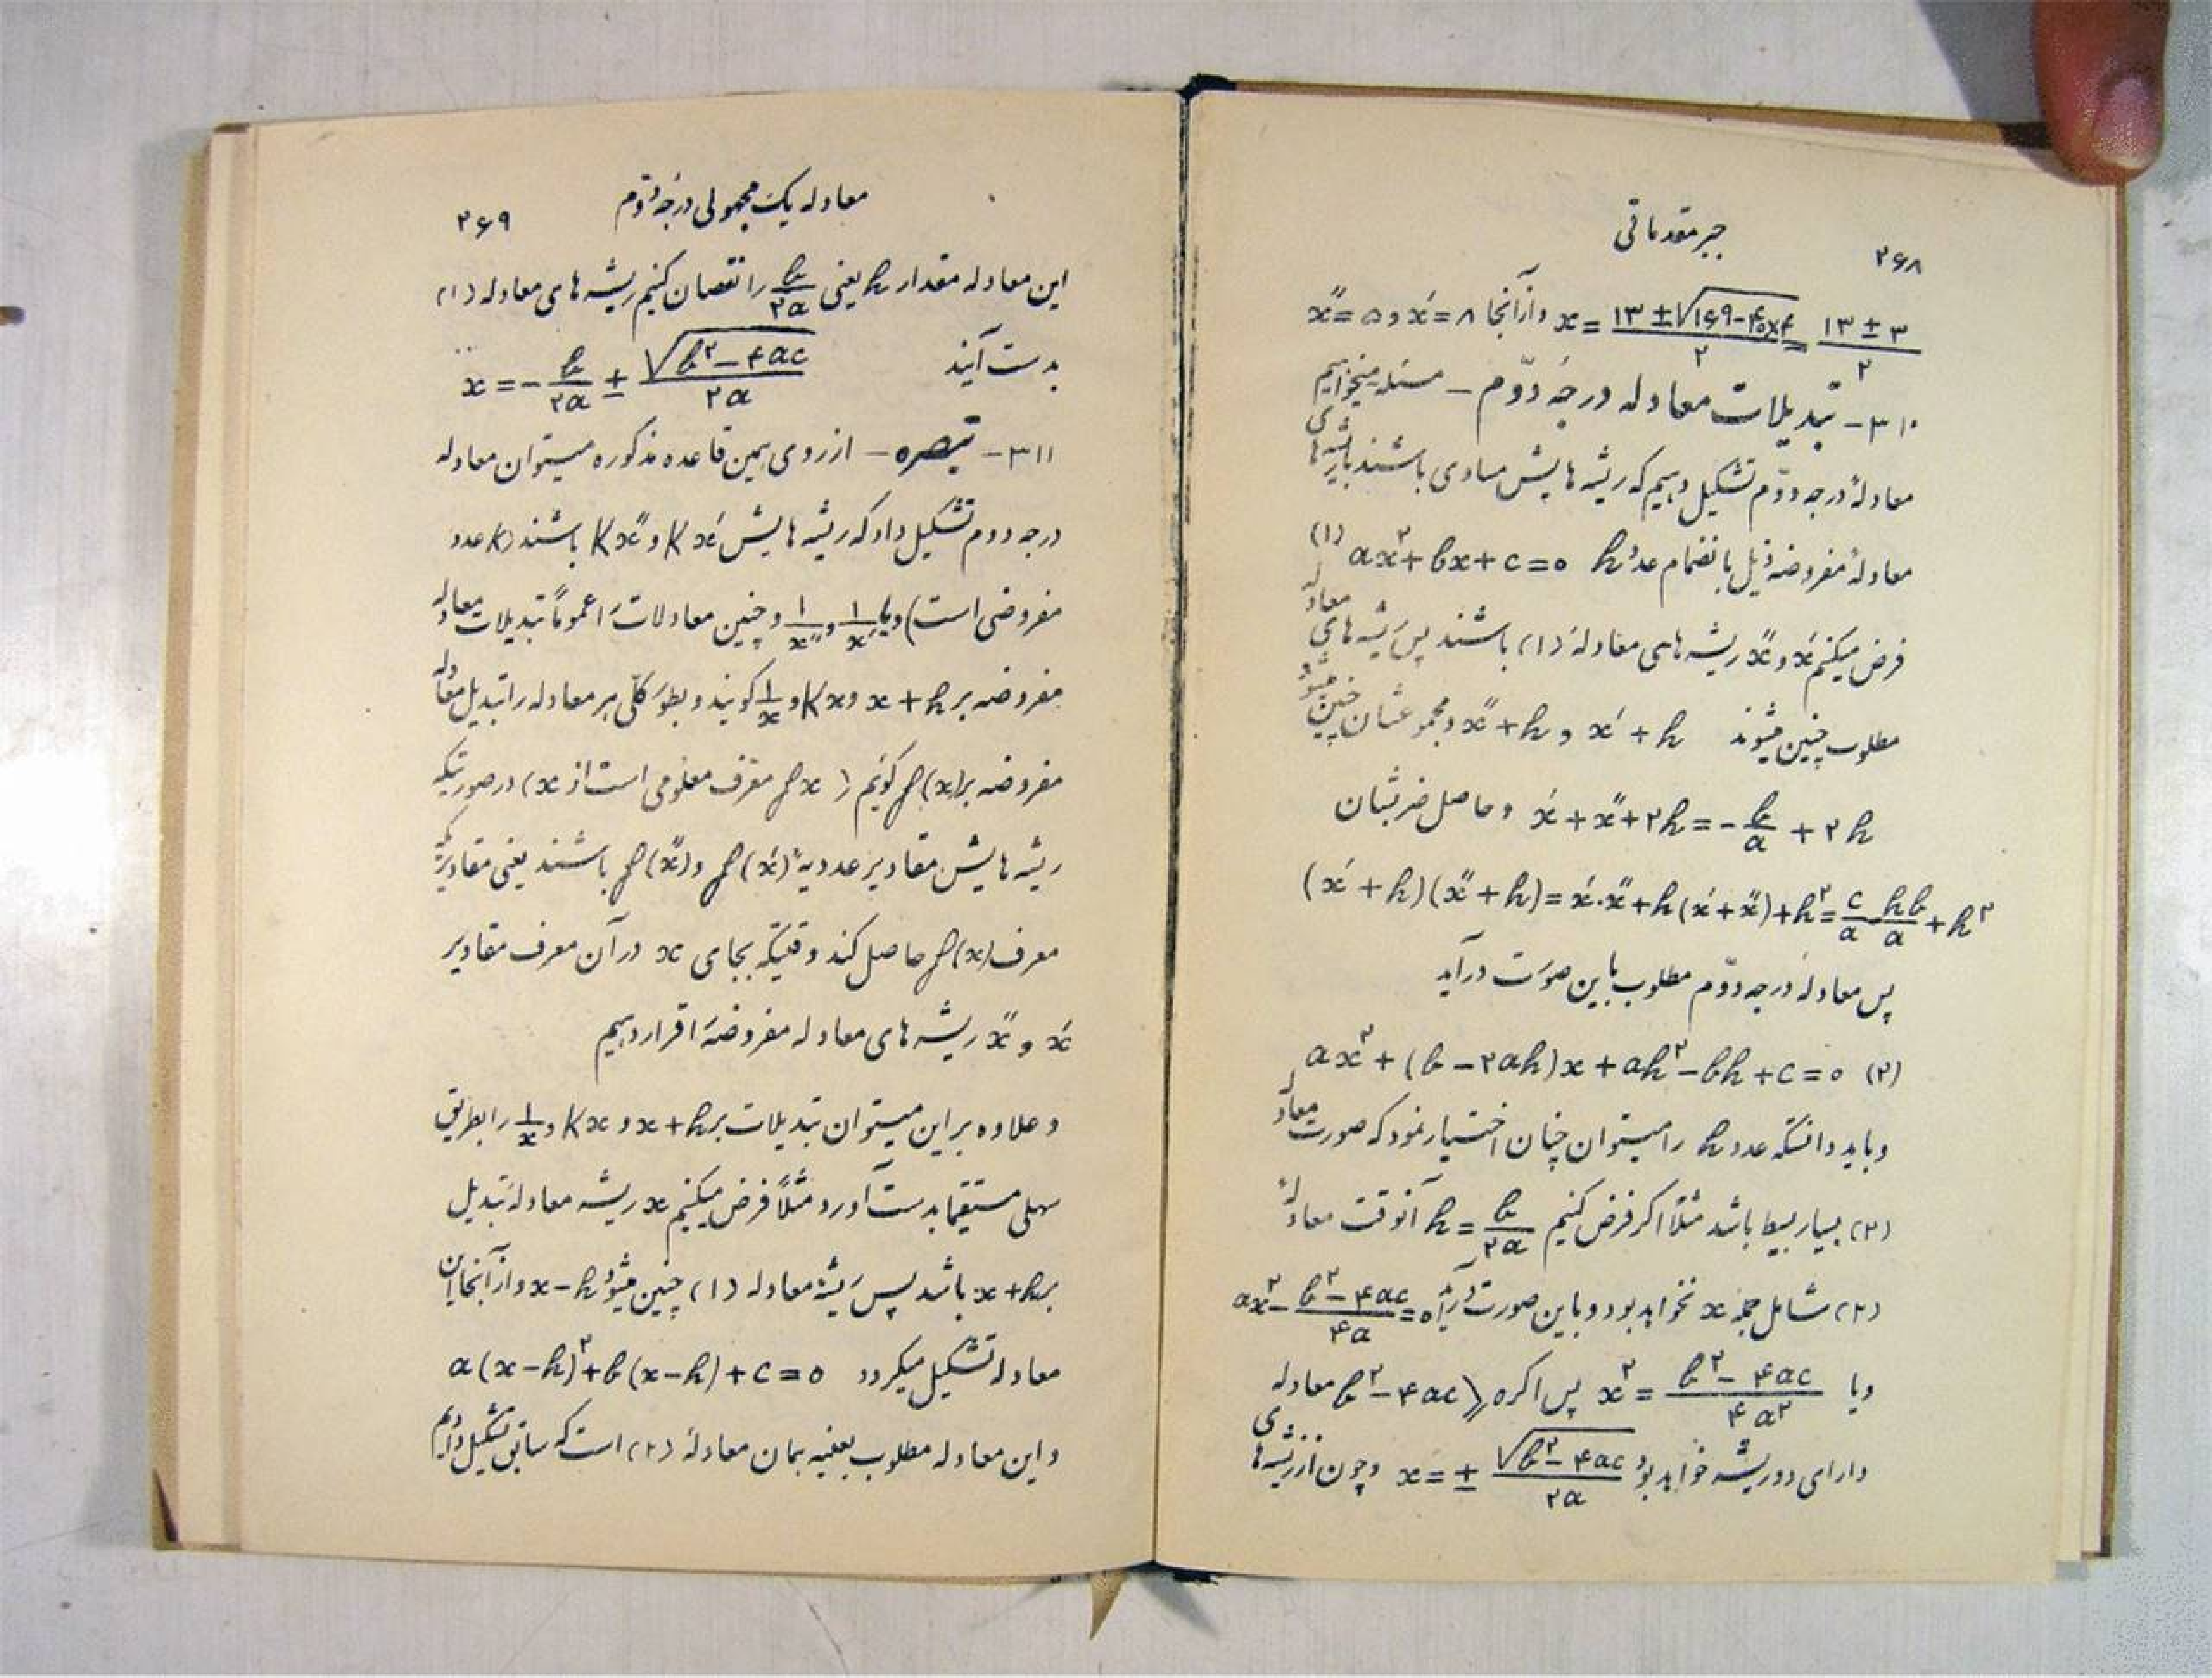 ۲۶۸ جبر مقدماتی
x = (۱۳ ± √(۱۶۹-۴۰×۴))/۲ = (۱۳ ± ۳)/۲ وازآنجا x′ = ۸ و x″ = ۵
۳۱۰- تبدیلات معادله درجهٔ دوّم - مسئله میخواهیم
معادلهٔ درجه دوّم تشکیل دهیم که ریشه هایش مساوی باشند با ریشه‌های
معادلهٔ مفروضه ذیل بانضمام عدد h ax²+bx+c=۰ (۱)
فرض میکنیم x′ و x″ ریشه های معادلهٔ (۱) باشند پس ریشه های معادله
مطلوب چنین میشوند x′+h و x″+h ومجموعشان چنین میشود
x′+x″+۲h = -b/a + ۲h وحاصل ضربشان
(x′+h)(x″+h) = x′.x″+h(x′+x″)+h² = c/a - hb/a + h²
پس معادلهٔ درجه دوّم مطلوب باین صورت درآید
ax²+(b-۲ah)x+ah²-bh+c=۰ (۲)
وباید دانستکه عدد h را میتوان چنان اختیار نمود که صورت معادله
(۲) بسیار بسیط باشد مثلاً اگر فرض کنیم h = b/۲a آنوقت معادلهٔ
(۲) شامل جمله x نخواهد بود و باین صورت درآید ax² - (b²-۴ac)/۴a = ۰
ویا x² = (b²-۴ac)/۴a² پس اگر ۰ < b²-۴ac معادله
دارای دو ریشه خواهد بود x = ± √(b²-۴ac)/۲a وچون از ریشه‌های
معادله یک مجهولی درجهٔ دوّم ۲۶۹
این معادله مقدار h یعنی b/۲a را نقصان کنیم ریشه های معادله (۱)
بدست آیند x = -b/۲a ± √(b²-۴ac)/۲a
۳۱۱- تبصره - از روی همین قاعده مذکوره میتوان معادله
درجه دوم تشکیل داد که ریشه هایش Kx′ و Kx″ باشند (K عدد
مفروضی است) ویا ۱/x′ و ۱/x″ و چنین معادلات را عموماً تبدیلات معادله
مفروضه بر x+h و Kx و ۱/x گویند و بطور کلّی هر معادله را تبدیل معادله
مفروضه بر f(x) گوئیم (fx معرف معلومی است از x) در صورتیکه
ریشه هایش مقادیر عددیهٔ f(x′) و f(x″) باشند یعنی مقادیریکه
معرف f(x) حاصل کند وقتیکه بجای x در آن معرف مقادیر
x′ و x″ ریشه های معادله مفروضه را قرار دهیم
و علاوه بر این میتوان تبدیلات بر x+h و Kx و ۱/x را بطریق
سهلی مستقیما بدست آورد مثلاً فرض میکنیم x ریشه معادلهٔ تبدیل
بر x+h باشد پس ریشهٔ معادله (۱) چنین میشود x-h و از آنجا این
معادله تشکیل میگردد a(x-h)²+b(x-h)+c=۰
و این معادله مطلوب بعینه همان معادلهٔ (۲) است که سابق تشکیل دادیم